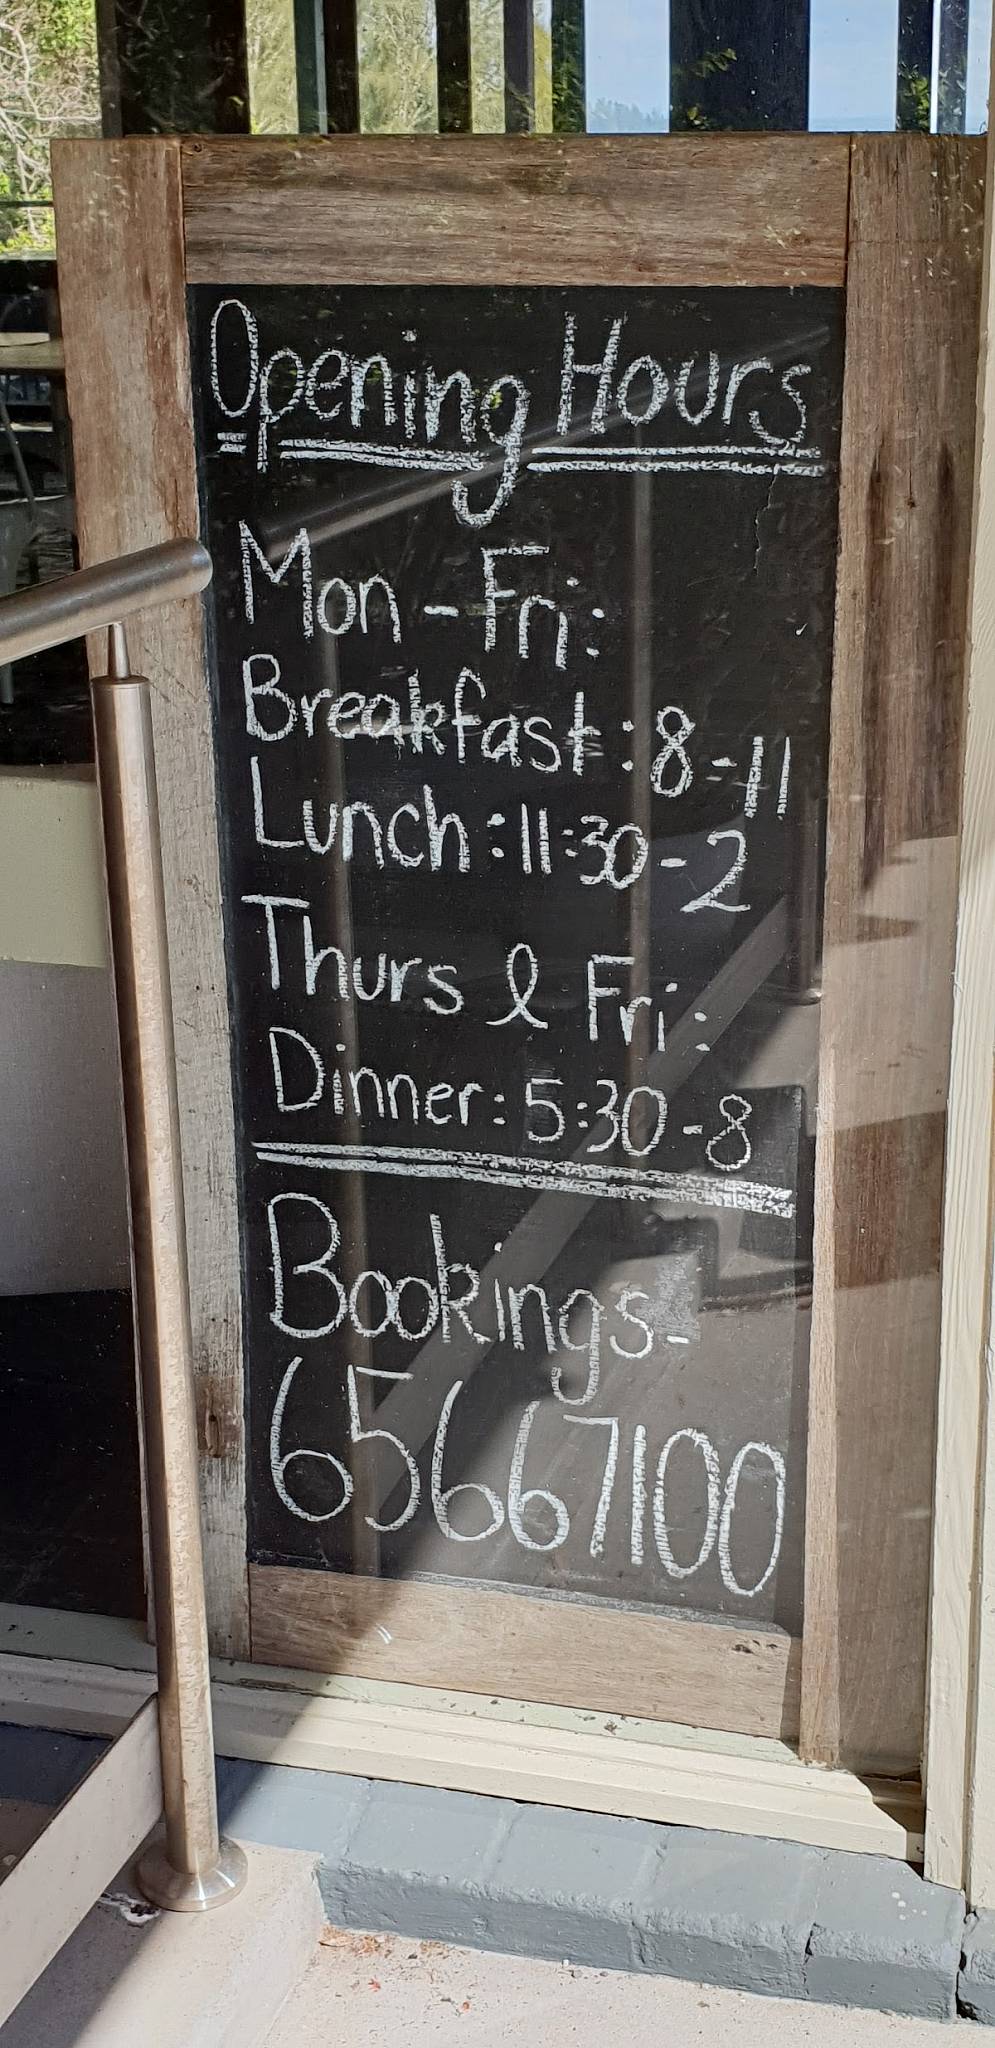 Opening Hours
Mon - Fri:
Breakfast: 8-11
Lunch: 11:30-2
Thurs & Fri:
Dinner: 5:30-8
Bookings-
65667100